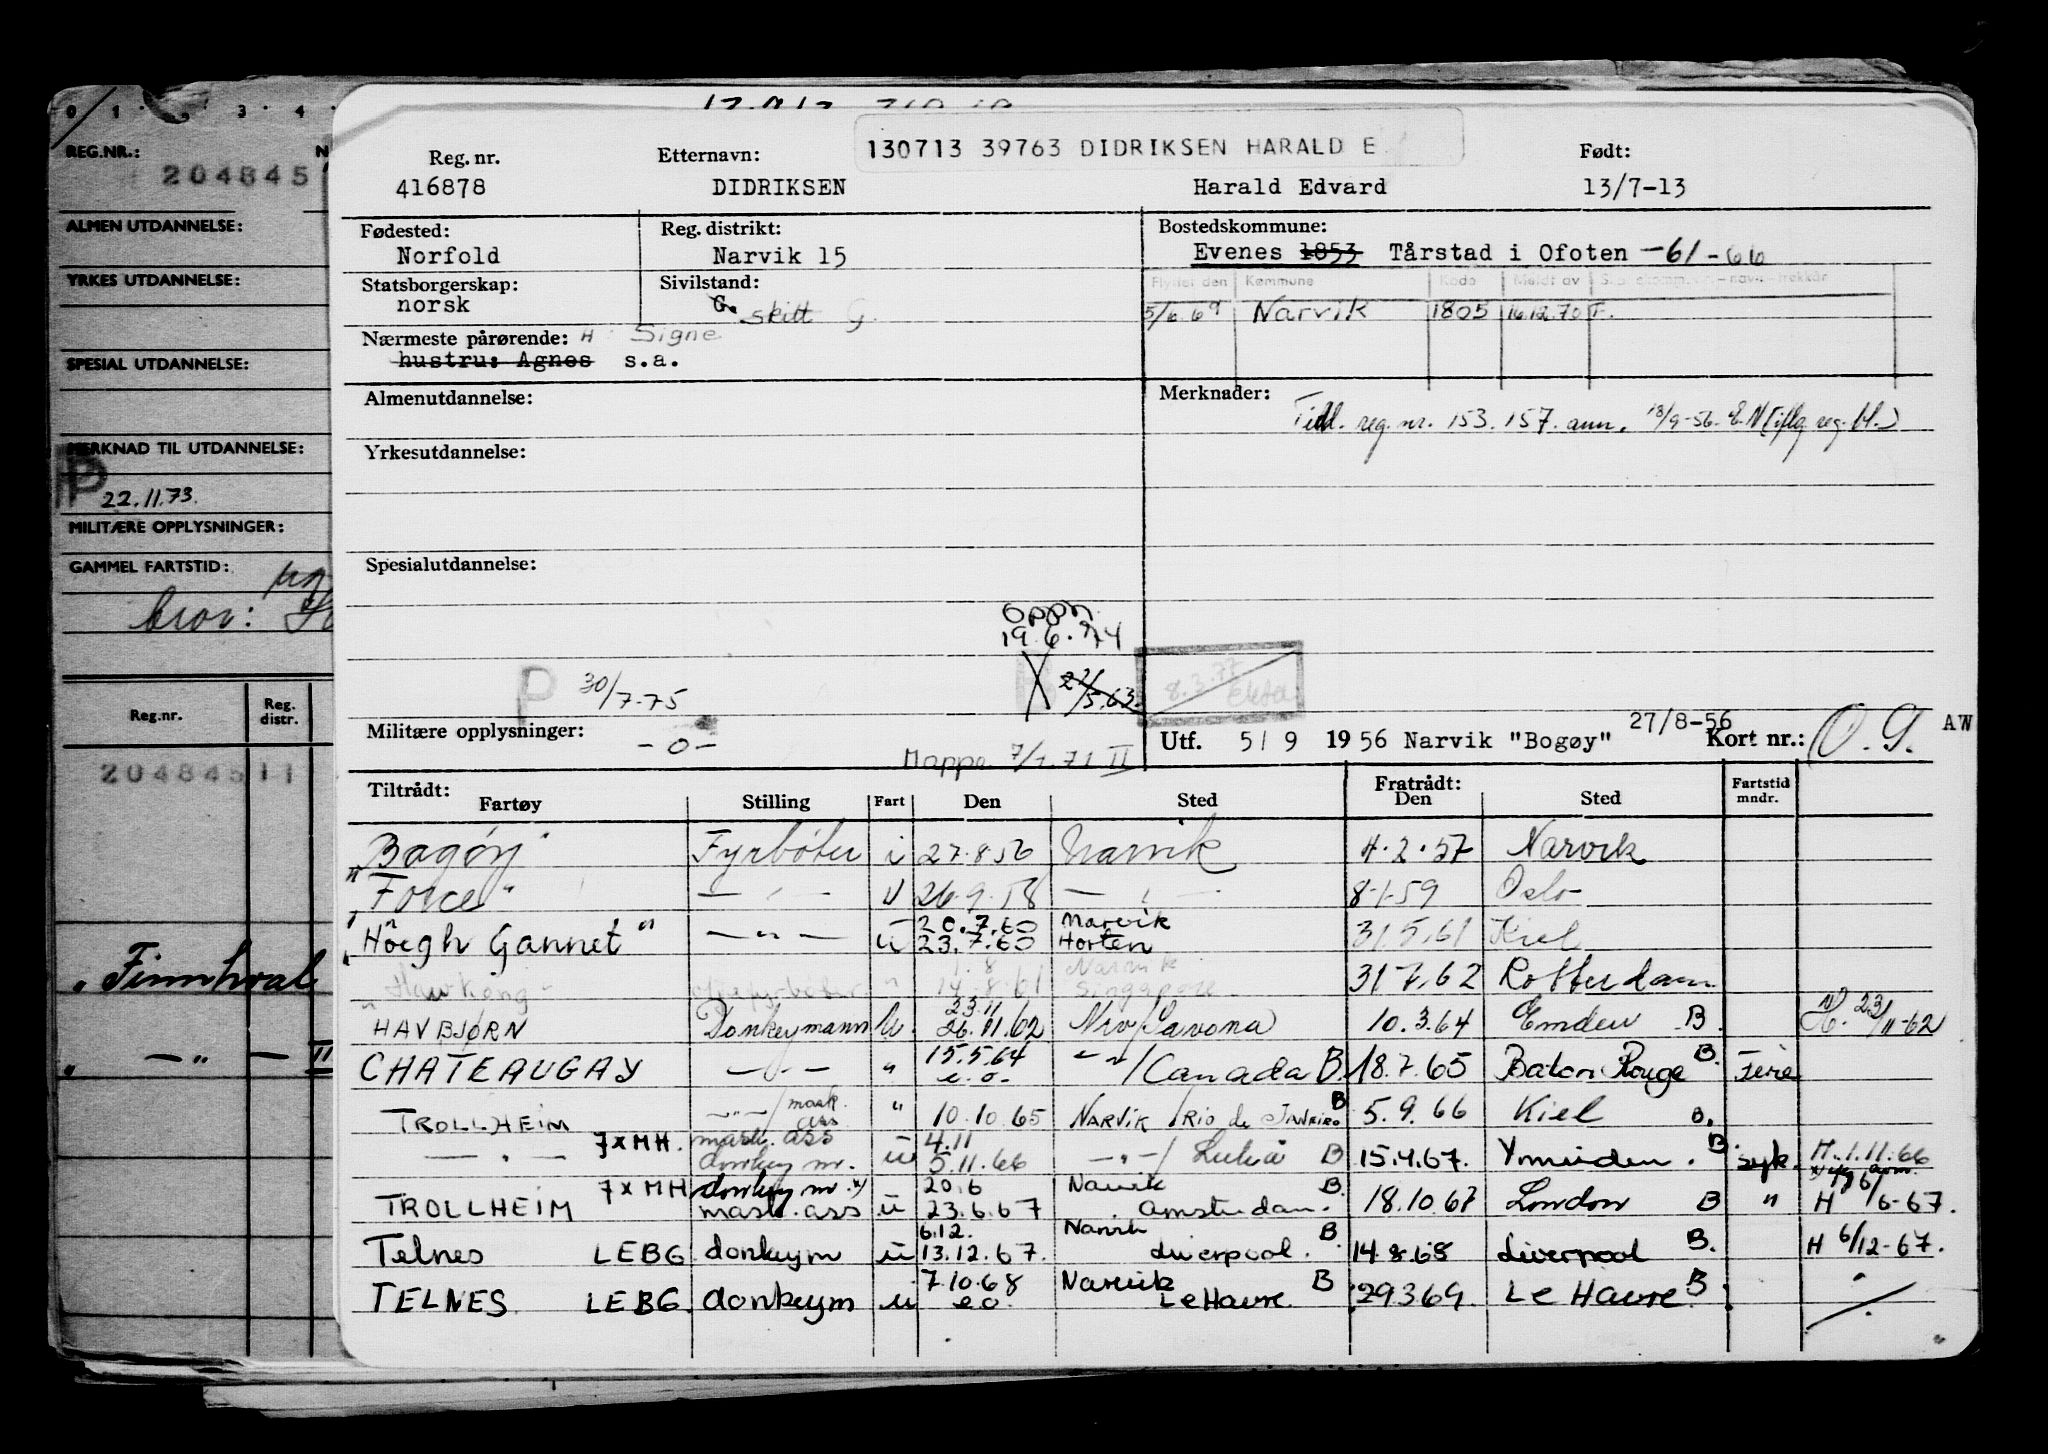 0 1 3 4
REG.NR.: N
204845
ALMEN UTDANNELSE:
YRKES UTDANNELSE:
SPESIAL UTDANNELSE:
MERKNAD TIL UTDANNELSE:
P 22.11.73.
MILITÆRE OPPLYSNINGER:
GAMMEL FARTSTID:
bror:
Reg.nr. Reg. distr.
204845 11
„Finnhval
„ —"— II
130713 39763 DIDRIKSEN HARALD E
Reg. nr. Etternavn: Født:
416878 DIDRIKSEN Harald Edvard 13/7-13
Fødested: Reg. distrikt: Bostedskommune:
Norfold Narvik 15 Evenes 1853 Tårstad i Ofoten -61-66
Statsborgerskap: Sivilstand: Flyttet den Kommune Kode Meldt av
norsk G. skilt G. 5/6.69 Narvik 1805 16.12.70 F.
Nærmeste pårørende: H Signe
hustru: Agnes s.a.
Almenutdannelse: Merknader:
Tidl. reg. nr. 153.157. ann. 18/9-56. E.N (iflg reg. bl.)
Yrkesutdannelse:
Spesialutdannelse:
Oppn.
19.6.74
P 30/7-75 22/5.63. 8.3.77
Militære opplysninger: -0- Mappe 7/1.71 II
Utf. 5/9 1956 Narvik "Bogøy" 27/8-56 Kort nr.: O.G. AW
Tiltrådt: Fratrådt: Fartstid
Fartøy Stilling Fart Den Sted Den Sted mndr.
Bogøy Fyrbøter i 27.8.56 Narvik 4.2.57 Narvik
"Force" — " — U 26.9.58 — " — 8-1-59 Oslo
20.7.60 Narvik
"Höegh Gannet" — " — u 23.7.60 Horten 31.5.61 Kiel
1.8 Narvik
"Hawkong" fyrbøter " 14.8.61 Singapore 31.7.62 Rotterdam
23.11
HAVBJØRN Donkeymann U. 26.11.62 Nrv/Savona 10.3.64 Emden B. 23/11-62
CHATEAUGAY — " — " 15.5.64 e.o. — " —/Canada B. 18.7.65 Baton Rouge B. Ferie
TROLLHEIM — " —/mask. ass " 10.10.65 NARVIK/RIO de JANEIRO B 5.9.66 Kiel B.
— " — 7xMH. mask. ass donkey m. u 4.11 5.11.66 — " —/Luleå B 15.4.67. Ymuiden. B. syk. H. 1.11.66
TROLLHEIM 7xMH donkey m. x) mask. ass u 20.6 23.6.67 Narvik Amsterdam. B. 18.10.67 London B " H /6-67.
Telnes LEBG donkeym u 6.12. 13.12.67. Narvik Liverpool. B. 14.8.68 Liverpool B. H 6/12-67.
TELNES. LEBG. donkeym u 7.10.68 e.o. Narvik Le Havre. B 29.3.69. Le Havre B.